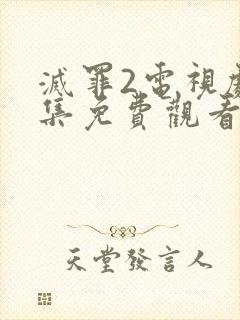 滅罪2電視劇
集免費觀看
天堂發言人